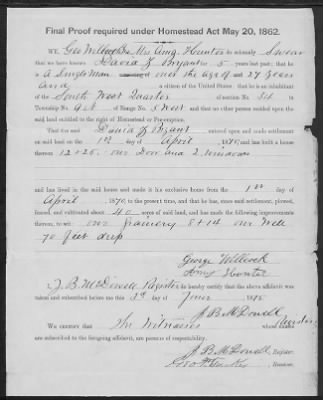 Final Proof required under Homestead Act May 20, 1862.
WE, Geo Willock & Mrs Amy Hunter do solemnly Swear
that we have known David F Bryant for 5 years last past; that he is
a Single man over the age of 27 years
and a citizen of the United States; that he is an inhabitant
of the South West Quarter of section No. 34 in
Township No. of Range No. 5 West and that no other person resided upon the
said land entitled to the right of Homestead or Pre-emption.
That the said David F Bryant entered upon and made settlement
on said land on the 1st day of April 1870, and has built a house
thereon 12 x 25 one Door and 2 windows
and has lived in the said house and made it his exclusive home from the 1st day of
April 1870, to the present time, and that he has, since said settlement, plowed,
fenced, and cultivated about 40 acres of said land, and has made the following improvements
thereon, to wit: one Grainery 8 x 14 one Well
70 feet deep
George Willock
Amy Hunter
I, J. B. McDowell Register do hereby certify that the above affidavit
was taken and subscribed before me this 3d day of June 1875
J B McDowell
WE CERTIFY that The Witnesses whose names
are subscribed to the foregoing affidavit, are persons of respectability.
J. B. McDowell, Register.
Receiver.